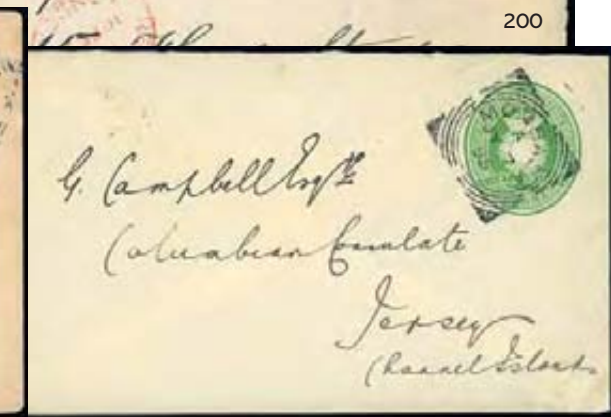 200
G. Campbell Esqre
Columbian Consulate
Jersey
Channel Islands